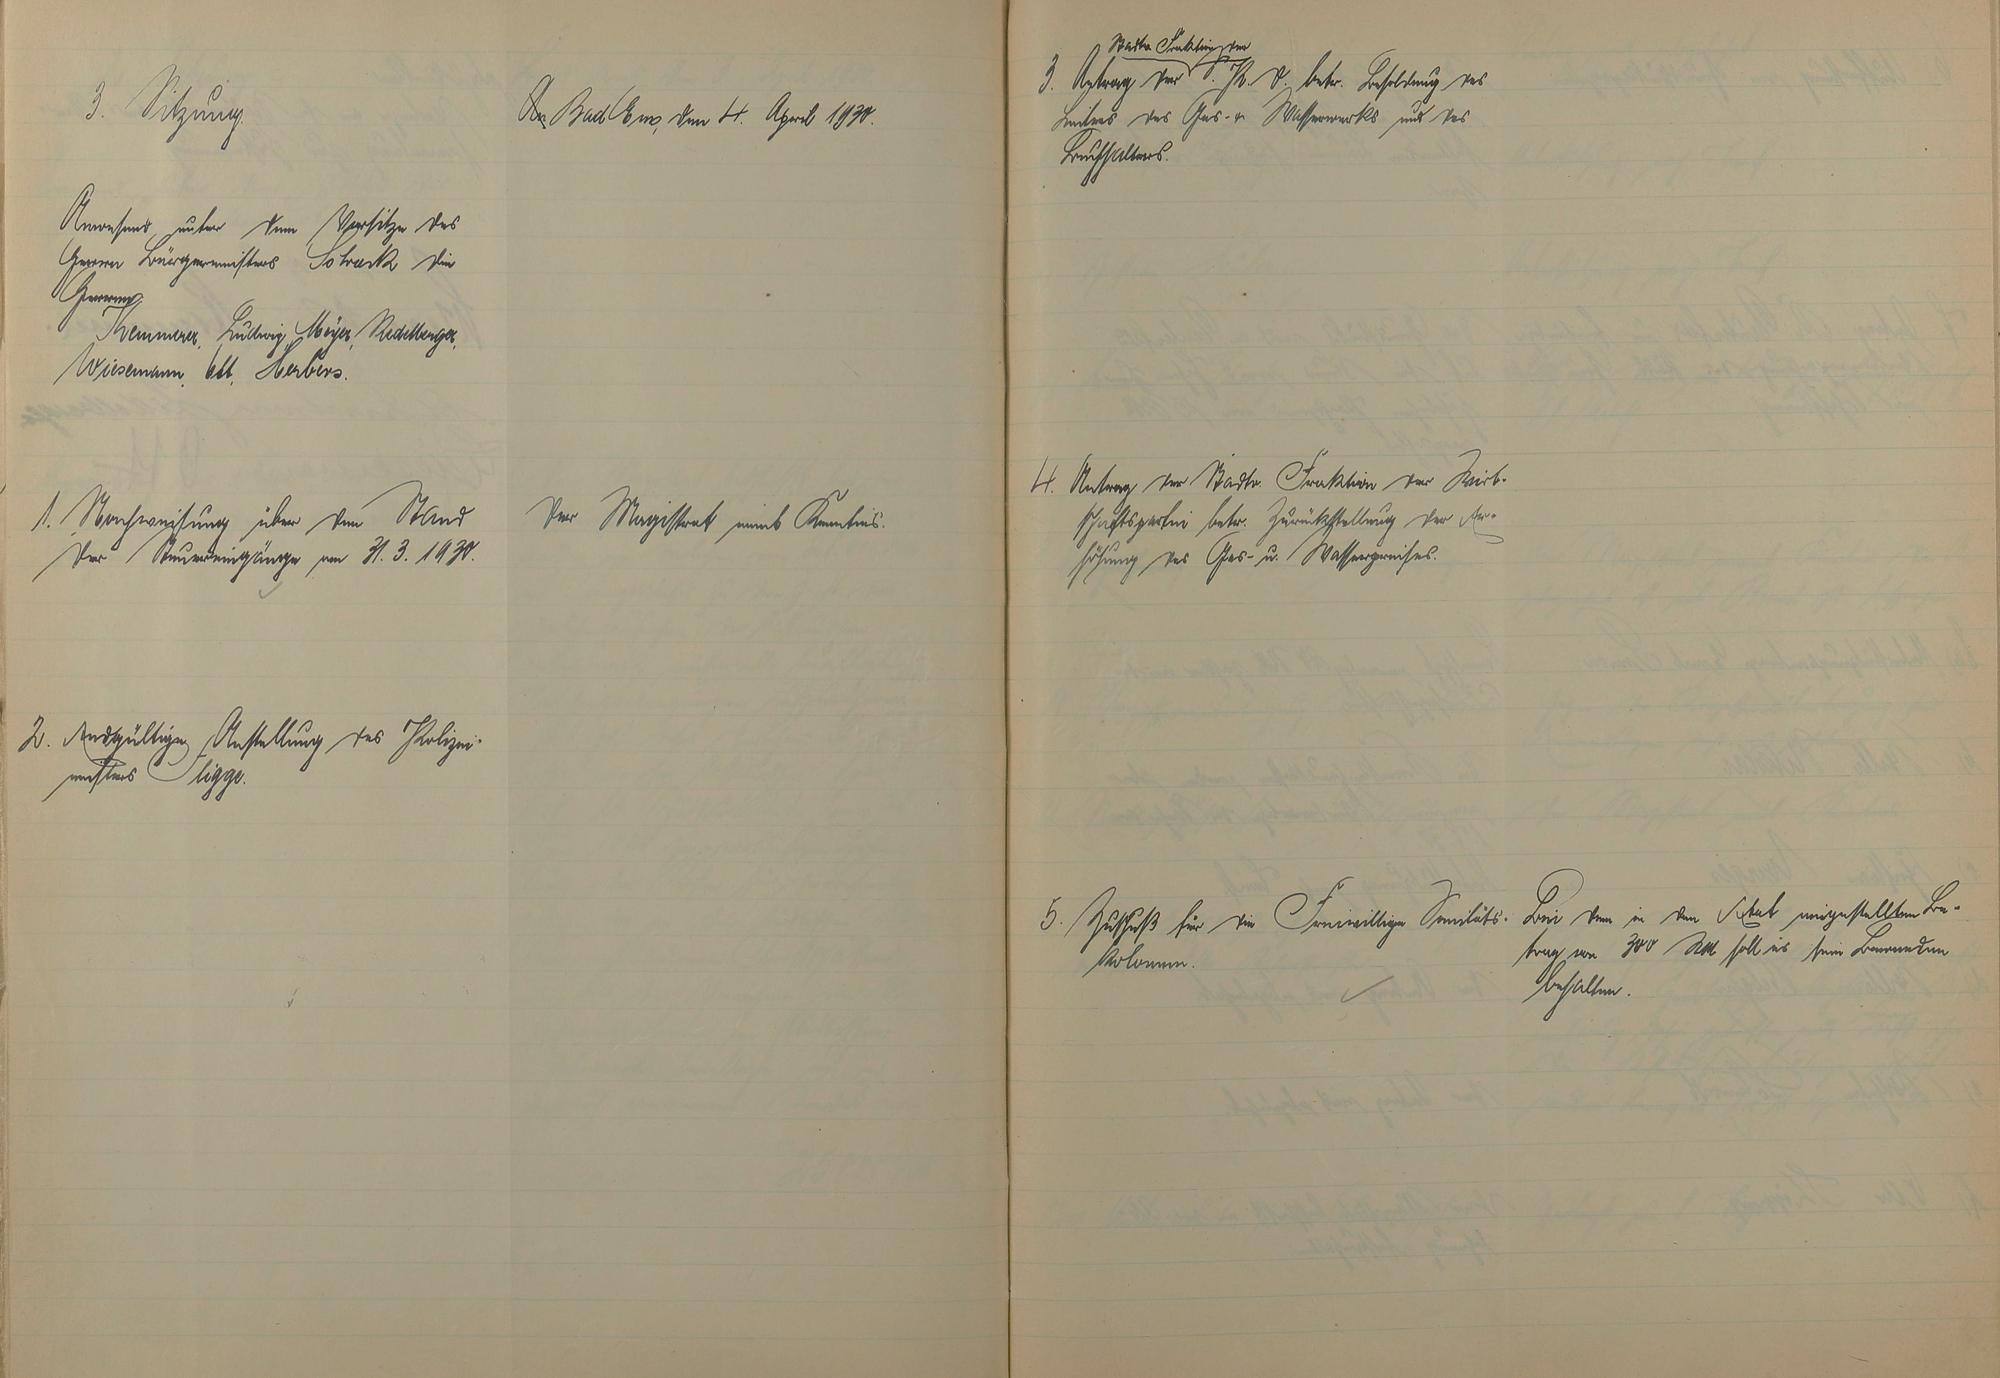 3. Sitzung.
Bad Ems, den 4. April 1930.
Anwesend unter dem Vorsitze des
Herrn Bürgermeisters Schrack die
Herren
Kemmerer, Ludwig, Meyer, Redelberger,
Wiesemann, Ott, Herbers.
1. Nachweisung über den Stand
der Steuereingänge am 31. 3. 1930.
Der Magistrat nimt Kenntnis.
2. Endgültige Anstellung des Polizei-
meisters Fligge.
Stadtv. Fraktion der
3. Antrag der S. P. D. betr. Besoldung des
Leiters des Gas- u. Wasserwerks und des
Buchhalters.
4. Antrag der Stadtv. Fraktion der Wirt-
schaftspartei betr. Zurückstellung der Er-
höhung des Gas- u. Wasserpreises.
5. Zuschuß für die Freiwillige Sanitäts-
kolonne.
Bei dem in den Etat eingestellten Be-
trag von 300 RM soll es sein Bewenden
behalten.